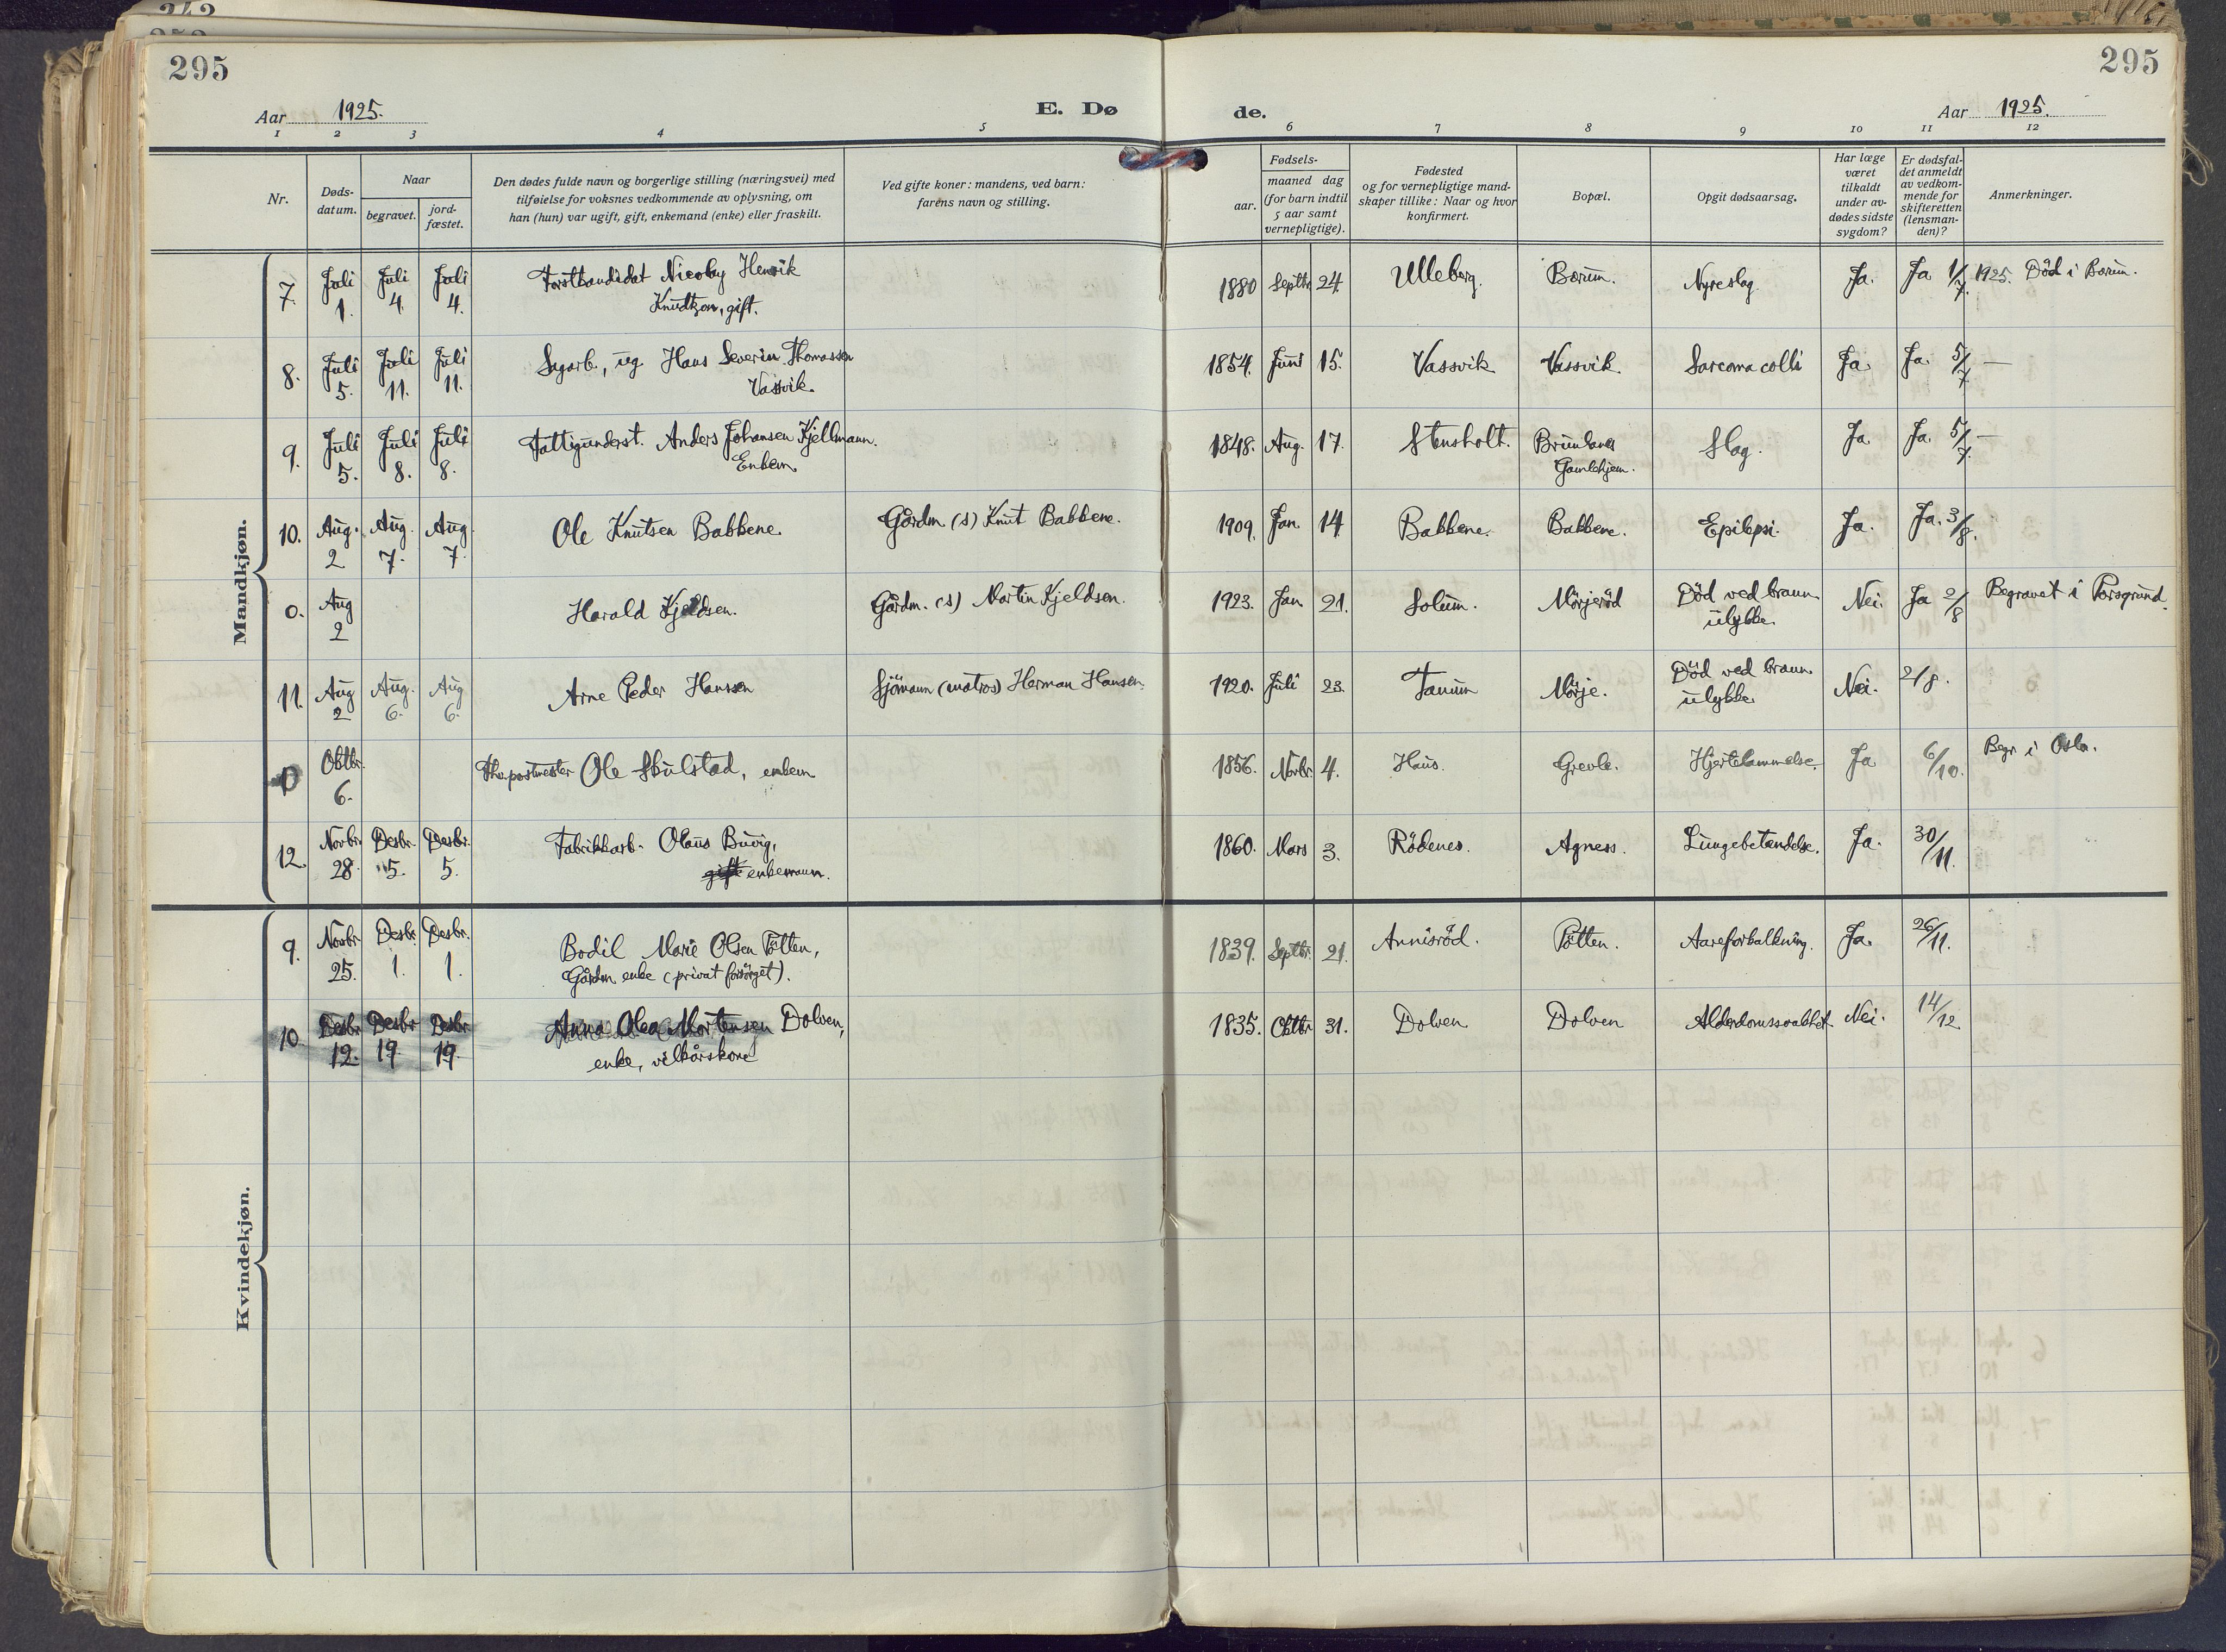 295
295
Aar 1925.
E. Dø
de.
Aar 1925.
1 2 3 4 5 6 7 8 9 10 11 12
Nr.
Døds-
datum.
Naar
begravet.
jord-
fæstet.
Den dødes fulde navn og borgerlige stilling (næringsvei) med
tilføielse for voksnes vedkommende av oplysning, om
han (hun) var ugift, gift, enkemand (enke) eller fraskilt.
Ved gifte koner: mandens, ved barn:
farens navn og stilling.
Fødsels-
aar.
maaned dag
(for barn indtil
5 aar samt
vernepligtige).
Fødested
og for vernepligtige mand-
skaper tillike: Naar og hvor
konfirmert.
Bopæl.
Opgit dødsaarsag.
Har læge
været
tilkaldt
under av-
dødes sidste
sygdom?
Er dødsfal-
det anmeldt
av vedkom-
mende for
skifteretten
(lensman-
den)?
Anmerkninger.
Mandkjøn.
7. Juli Juli Juli Forstkandidat Nicolay Henrik 1880 Septbr 24. Ulleberg. Bærum. Nyreslag. Ja. Ja 1/7. 1925. Död i Bærum.
1. 4. 4. Knudtzon, gift.
8. Juli Juli Juli Sagarb., ug Hans Severin Thomassen 1854. Juni 15. Vassvik Vassvik. Sarcoma colli Ja. Ja. 5/7. —
5. 11. 11. Vassvik.
9. Juli Juli Juli Fattigunderst. Anders Johansen Kjellmann. 1848. Aug. 17. Stensholt. Brunlanes Slag. Ja. Ja. 5/7. —
5. 8. 8. Enkem. Gamlehjem.
10. Aug. Aug. Aug. Ole Knutsen Bakkene. Gårdm. (s) Knut Bakkene. 1909. Jan. 14 Bakkene. Bakkene. Epilepsi. Ja. Ja. 3/8.
2 7. 7.
0. Aug Harald Kjeldsen. Gårdm. (s) Martin Kjeldsen. 1923. Jan. 21. Solum. Mörjeröd Död ved brann- Nei. Ja 2/8 Begravet i Porsgrund.
2 ulykke.
11. Aug Aug. Aug Arne Peder Hansen Sjömann (matros) Herman Hansen. 1920. Juli 23. Tanum Mörje. Död ved brann- Nei. 2/8.
2 6. 6. ulykke
0 Oktbr. Fhv. postmester Ole Skulstad, enkem 1856. Novbr. 4. Haus. Grevle. Hjertelammelse. Ja 6/10. Begr i Oslo.
6.
12. Novbr. Desbr. Desbr. Fabrikkarb. Olaus Buvig, 1860. Mars 3. Rödenes. Agness. Lungebetændelse. Ja. 30/11.
28. 5. 5. gift enkemann.
Kvindekjøn.
9. Novbr Desbr. Desbr. Bodil Marie Olsen Pötten, 1839. Septbr. 21. Annisröd. Pötten. Aareforkalkning. Ja. 26/11.
25. 1. 1. Gårdm. enke (privat forsörget).
10. Desbr Desbr Desbr Anna Olea Mortensen Dolven, 1835. Oktbr 31. Dolven Dolven Alderdomssvakhet Nei. 14/12.
12. 19. 19. enke, vilkårskone